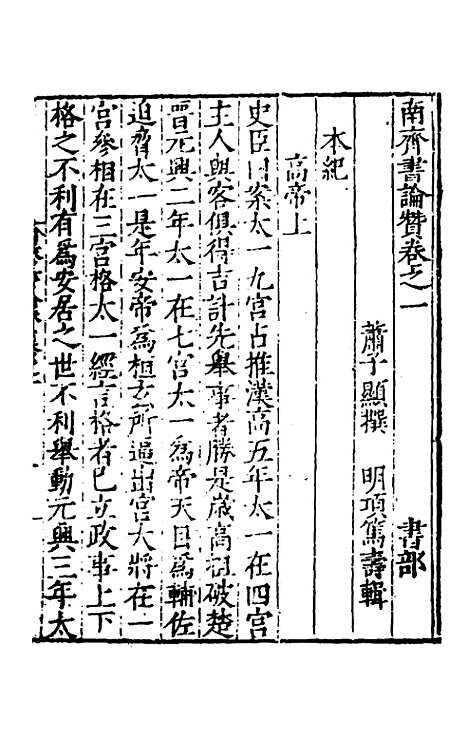 南齊書論贊卷之一 書部
蕭子顯撰 明項篤壽輯
本紀
高帝上
史臣曰案太一九宮占推漢高五年太一在四宮
主人與客俱得吉計先舉事者勝是歲高祖破楚
晉元興二年太一在七宮太一為帝天目為輔佐
迫脅太一是年安帝為桓玄所逼出宮大將在一
宮參相在三宮格太一經言格者已立政事上下
格之不利有為安居之世不利舉動元興三年太